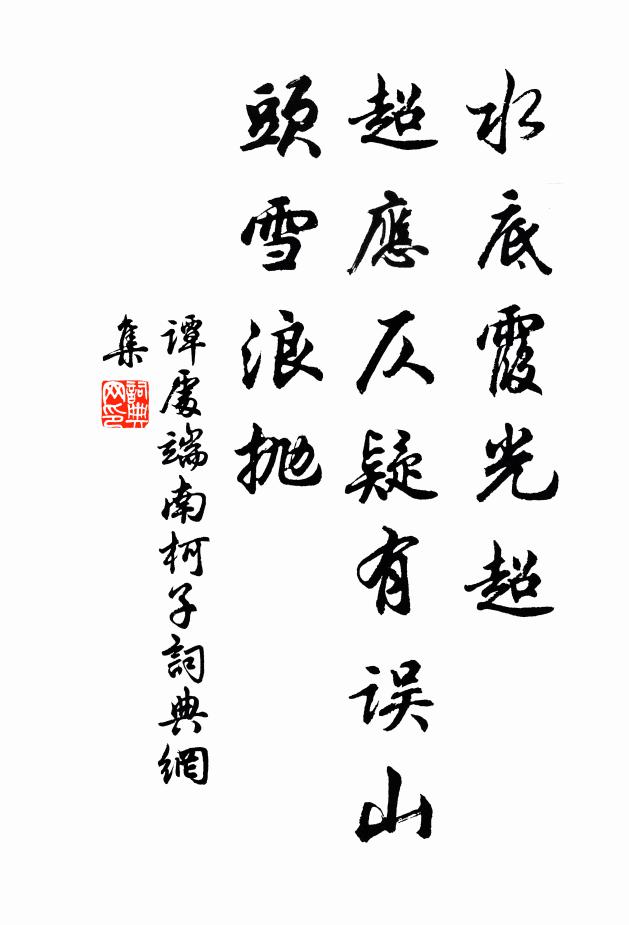 水底霞光超
超應仄疑有误山
頭雪浪抛
谭處端南柯子詞典網
集
詞典
网印